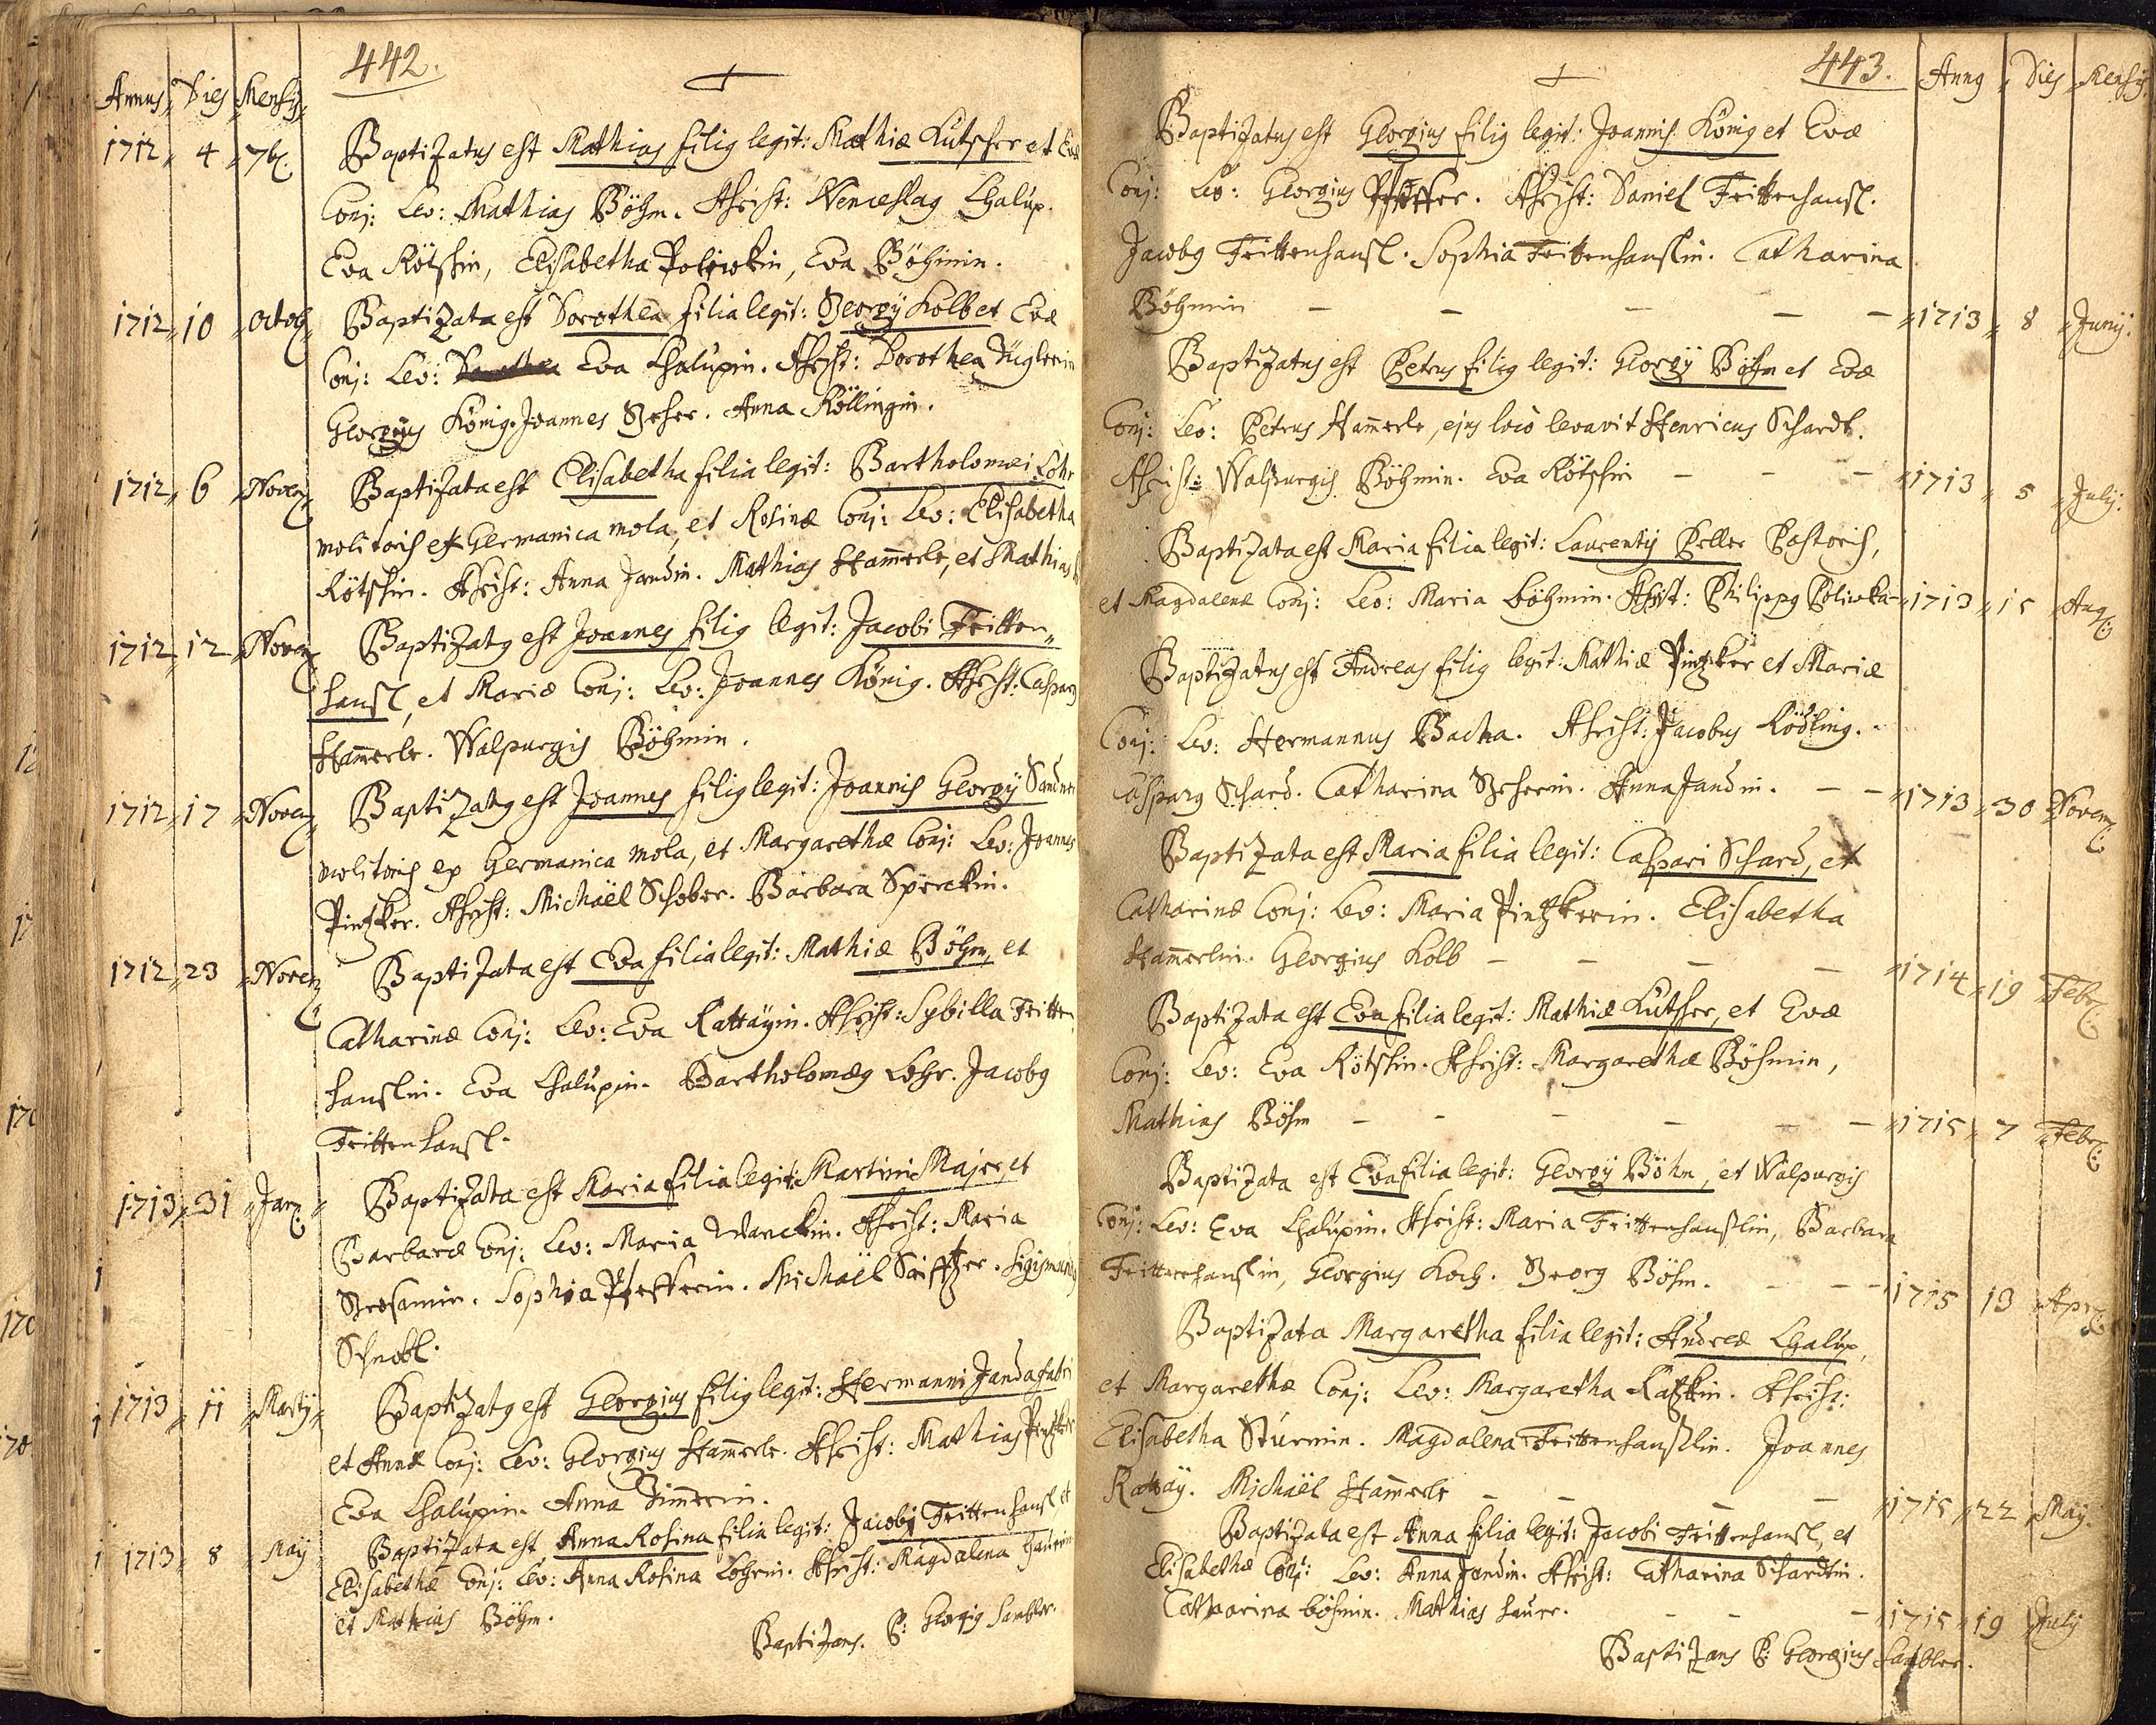 442.
Annus Dies Mensis
1712 4 7br. Baptizatus est Mathias filig legit: Mathiæ Kutscher et Evæ
Conj: Lev: Mathias Böhm. Assist: Wenceslag Chalup.
Eva Rötschin, Elisabetha Poliwkin, Eva Böhmin.
1712 10 Octob. Baptizata est Dorothea filia legit: Georgÿ Kolb et Evæ
Conj: Lev: Eva Chalupin. Assist: Dorothea
Georgius König. Joannes. Anna Röllingin.
1712 6 Novem. Baptizata est Elisabetha filia legit: Bartholomæi Lohr
molitoris ex Germanica mola, et Rosinæ Conj: Lev: Elisabetha
Rötschin. Assist: Anna Jandin. Mathias Ham̄erle, et Mathias
1712 12 Novem. Baptizatg est Joannes filig legit: Jacobi Fritten
hansl, et Mariæ Conj: Lev: Joannes König. Assist: Casparg
Ham̄erle. Walpurgis Böhmin.
1712 17 Novem. Baptizatg est Joannes filig legit: Joannis Georgÿ Sandner
molitoris ex Germanica mola, et Margarethæ Conj: Lev: Joannes
Pintzker. Assist: Michaël Schober. Barbara Sperckin.
1712 23 Novem. Baptizata est Eva filia legit: Mathiæ Böhm, et
Catharinæ Conj: Lev: Eva Rattaÿin. Assist: Sybilla Fritten
hanslin. Eva Chalupin. Bartholomæg Lohr. Jacobg
Frittenhansl.
1713 31 Jan. Baptizata est Maria filia legit: Martini Majer, et
Barbaræ Conj: Lev: Maria Wanckin. Assist: Maria
Sophia Pfefferin. Michaël. Sigismundg
Schnobl.
1713 11 Martÿ Baptizatg est Georgius filig legit: Hermanni Janda fabri
et Annæ Conj: Lev: Georgius Ham̄erle. Assist: Mathias Pintzker
Eva Chalupin. Anna Zim̄erin.
1713 8 Maÿ Baptizata est Anna Rosina filia legit: Jacobi Frittenhansl, et
Elisabethæ Conj: Lev: Anna Rosina Lohrin. Assist: Magdalena
et Mathias Böhm.
Baptizans. P: Georgig Saxbler.
443. Anng Dies Mensis
Baptizatus est Georgius filig legit: Joannis König et Evæ
Conj: Lev: Georgius Pfeffer. Assist: Daniel Frittenhansl.
Jacobg Frittenhansl. Sophia Frittenhanslin. Catharina
Böhmin 1713 8 Junÿ.
Baptizatus est Petrus filig legit: Georgÿ Böhm et Evæ
Conj: Lev: Petrus Ham̄erle, ejus loco levavit Henricus Schardt.
Assist: Walpurgis Böhmin. Eva Rötschin 1713 5 Julÿ:
Baptizata est Maria filia legit: Laurentÿ Peller Pastoris,
et Magdalenæ Conj: Lev: Maria Böhmin. Assist: Philippg Poliwka 1713 15 Aug.
Baptizatus est Andreas filig legit: Mathiæ Pintzker et Mariæ
Conj: Lev: Hermannus Bacha. Assist: Jacobus Rödling.
Casparg Schard. Catharina. Anna Jandin. 1713 30 Novem.
Baptizata est Maria filia legit: Caspari Schard, et
Catharinæ Conj: Lev: Maria Pintzkerin. Elisabetha
Ham̄erlin. Georgius Kolb 1714 19 Febr.
Baptizata est Eva filia legit: Mathiæ Kutscher, et Evæ
Conj: Lev: Eva Rötschin. Assist: Margaretha Böhmin,
Mathias Böhm 1715 7 Febr.
Baptizata est Eva filia legit: Georgÿ Böhm, et Walpurgis
Conj: Lev: Eva Chalupin. Assist: Maria Frittenhanslin, Barbara
Frittenhanslin, Georgius Koch. Georg Böhm. 1715 13 Apr.
Baptizata Margaretha filia legit: Andreæ Chalup,
et Margarethæ Conj: Lev: Margaretha Ratzkin. Assist:
Elisabetha Sturmin. Magdalena Frittenhanslin. Joannes
Rattaÿ. Michaël Ham̄erle 1715 22 Maÿ.
Baptizata est Anna filia legit: Jacobi Frittenhansl, et
Elisabethæ Conj: Lev: Anna Jandin. Assist: Catharina Schardtin.
Catharina Böhmin. Mathias Hauer. 1715 19 Julÿ
Baptizans P: Georgius Saxbler.